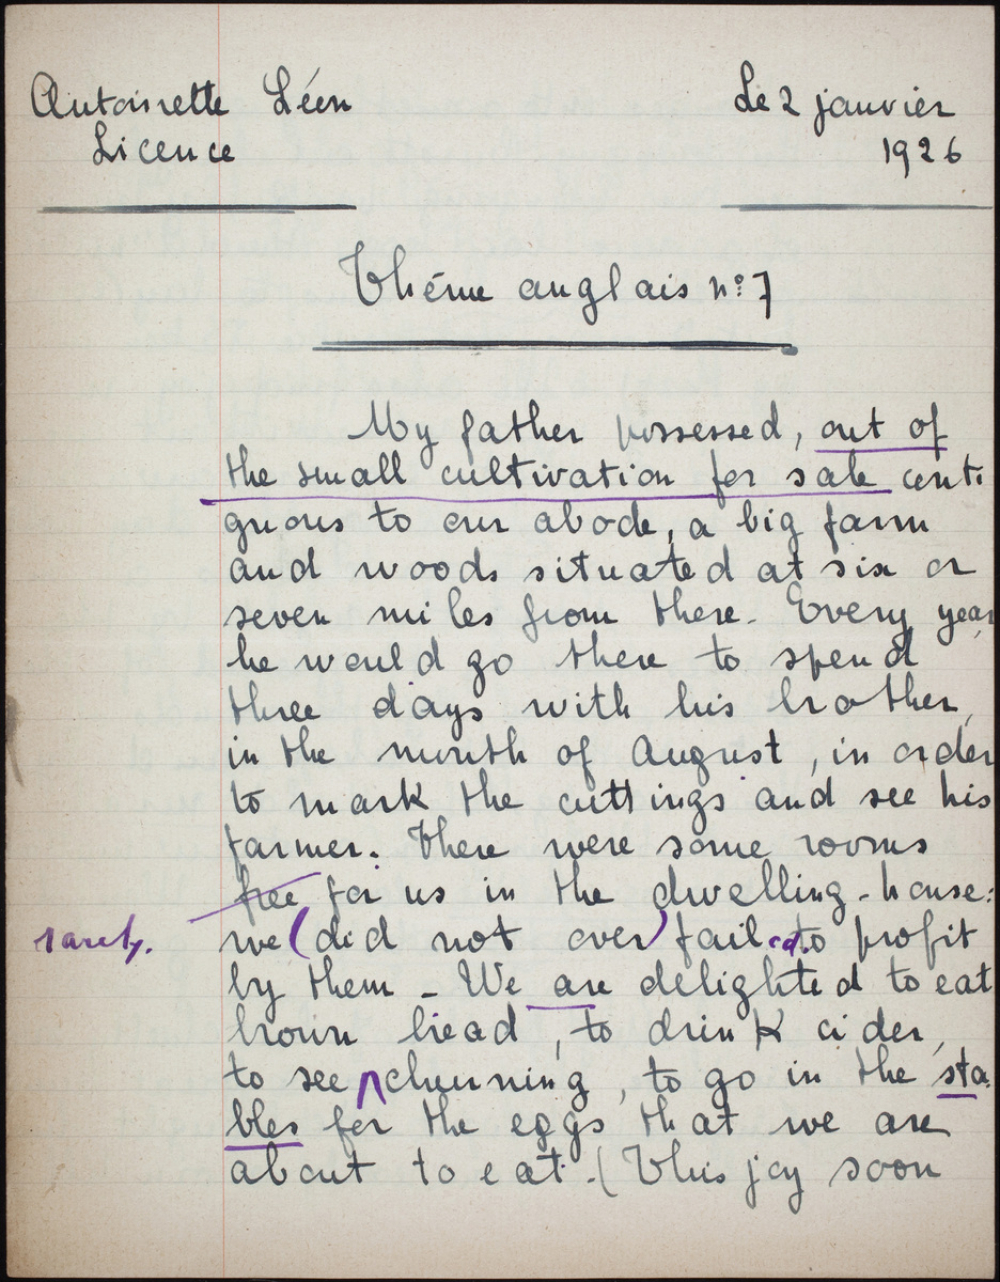 Antoinette Léon
Le 2 janvier
Licence
1926
Thème anglais nº 7
My father possessed, out of
the small cultivation for sale conti
guous to our abode, a big farm
and woods situated at six or
seven miles from there. Every year
he would go there to spend
three days with his brother,
in the month of August, in order
to mark the cuttings and see his
farmer. There were some rooms
free for us in the dwelling-house:
rarely. we (did not over) failed to profit
by them - We are delighted to eat
brown bread, to drink cider,
to see churning, to go in the sta
bles for the eggs that we are
about to eat. (This joy soon